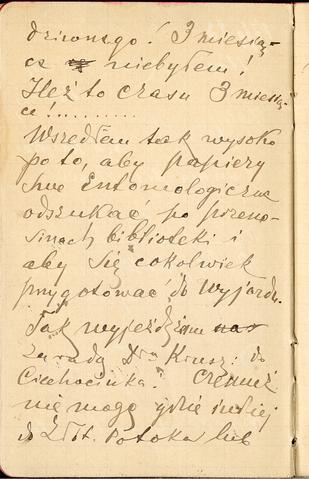 dziwnego! 3 miesią-
ce niebyłem!
Ileż to czasu 3 miesią-
ce!..........
Wszedłem tak wysoko
po to, aby papiery
swe Entomologiczne
odszukać po przeno-
sinach biblioteki i
aby się cokolwiek
przygotować do wyjazdu.
Tak wyjeżdżam nas
za radą Dra Krusz: do
Ciechocinka! Czemuż
nie mogę gdzie indziej
do Złot. Potoka lub